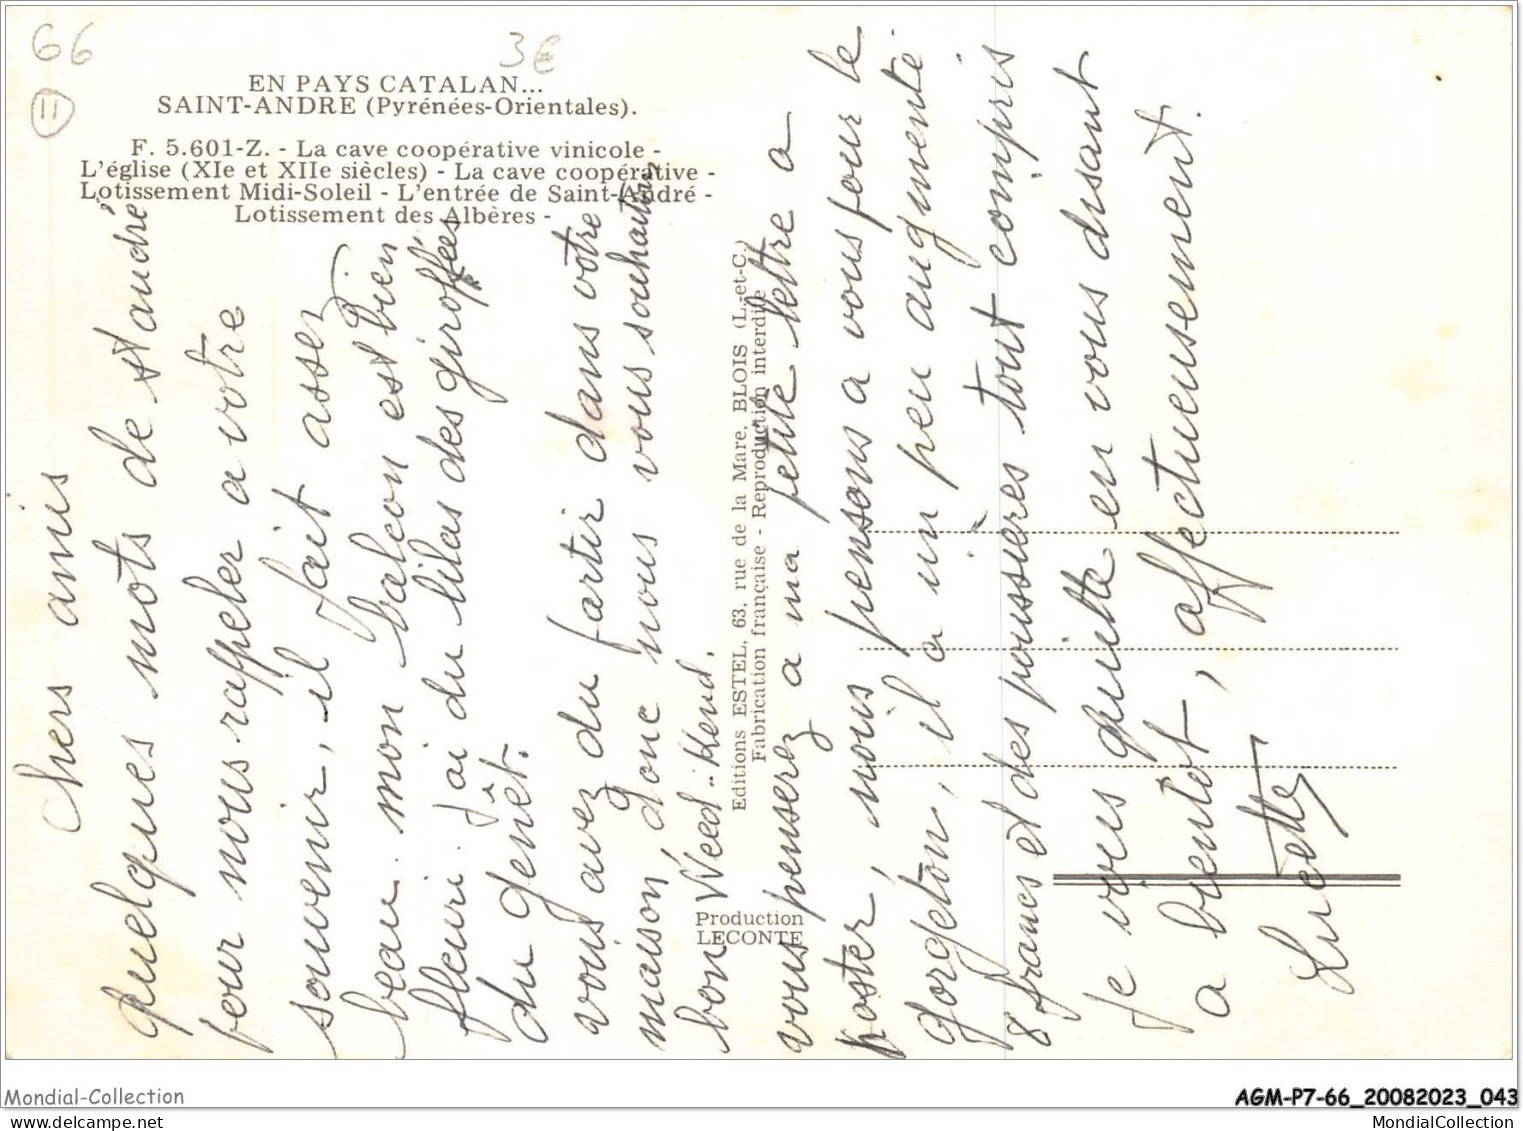 66
3€
11
EN PAYS CATALAN...
SAINT-ANDRE (Pyrénées-Orientales).
F. 5.601-Z. - La cave coopérative vinicole -
L'église (XIe et XIIe siècles) - La cave coopérative -
Lotissement Midi-Soleil - L'entrée de Saint-André -
Lotissement des Albères -
Chers amis
quelques mots de st andré
pour nous rappeler a votre
souvenir, il fait assez
beau. mon balcon est bien
fleuri. j'ai du lilas des giroflées
du genêt.
vous avez du partir dans votre
maison, donc nous vous souhaitons
bon Weed-Kend.
vous penserez a ma petite lettre a
poster, nous pensons a vous pour le
gorgeton, il a un peu augmenté.
8 francs et des poussières tout compris
Je vous quitte en vous disant
a bientôt, affectueusement.
Lucette
Editions ESTEL, 63, rue de la Mare, BLOIS (L.-et-C.)
Fabrication française - Reproduction interdite
Production
LECONTE
Mondial-Collection
AGM-P7-66_20082023_043
delcampe.net
MondialCollection